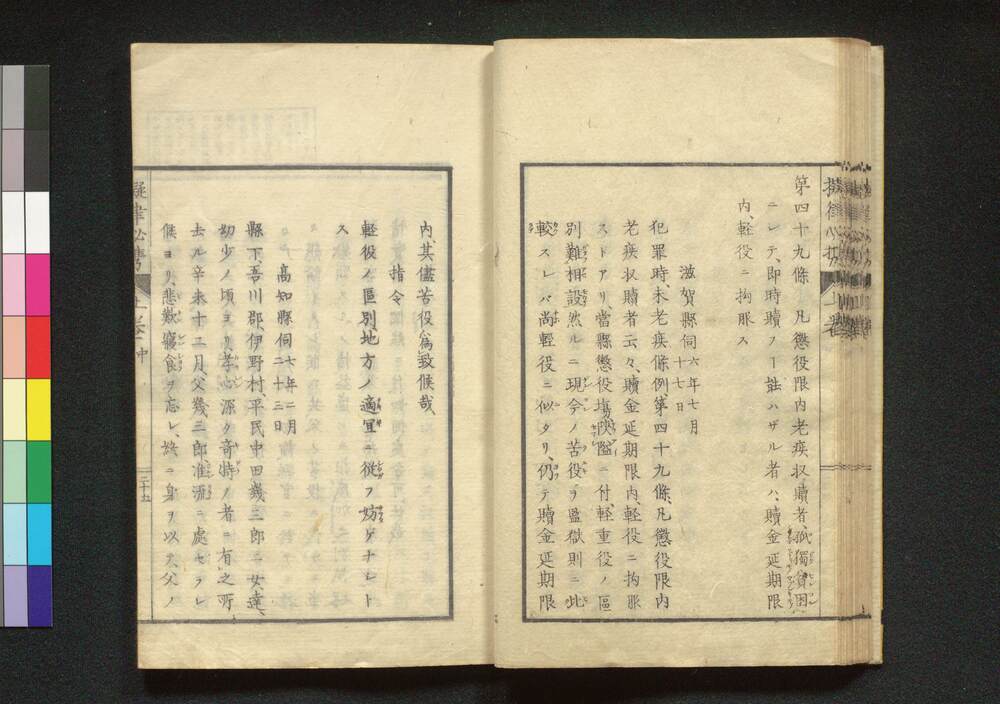 第四十九條、凡懲役限内老疾収贖者、孤獨貧困
ニシテ、即時贖フ一能ハザル者ハ、贖金延期限
内、軽役ニ拘服ス
滋賀縣伺 六年七月
十七日
犯罪時、未老疾條例、第四十九條、凡懲役限内
老疾収贖者云々、贖金延期限内、軽役ニ拘服
ストアリ、當縣懲役場陜隘ニ付軽重役ノ區
別難相設然ルニ現今ノ苦役ヲ監獄則ニ比
較スレバ尚軽役ニ似タリ、仍テ贖金延期限
内、其儘苦役為致候哉、
指令
軽役ノ區別、地方ノ適宜ニ從フ妨ゲナシト
ス
高知縣伺 七年二月
二十三日
縣下、吾川郡、伊野村、平民中田幾三郎ニ女達、
幼少ノ頃ヨリ孝心源ク奇特ノ者ニ有之所、
去ル辛未十二月父幾三郎、准流ニ處セラレ
候ヨリ、悲歎寝食ヲ忘レ、終ニ身ヲ以テ父ノ
二十五